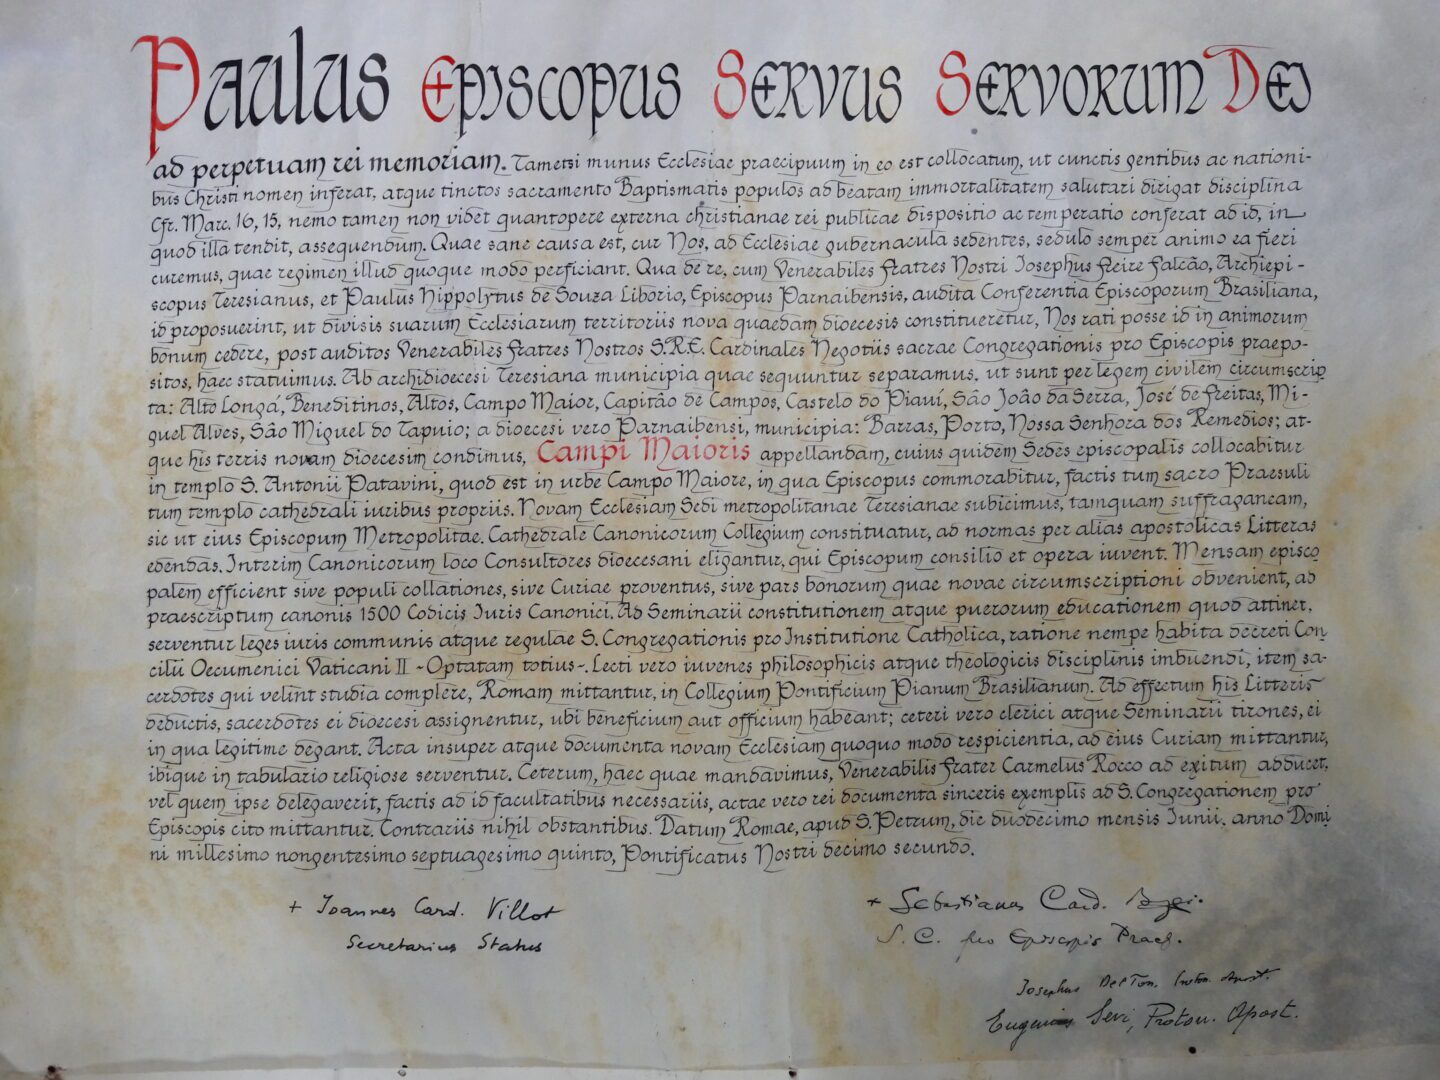 Paulus Episcopus Servus Servorum Dei
ad perpetuam rei memoriam. Tametsi munus Ecclesiae praecipuum in eo est collocatum, ut cunctis gentibus ac nationi-
bus Christi nomen inferat, atque tinctos sacramento Baptismatis populos ad beatam immortalitatem salutari dirigat disciplina
Cfr. Marc. 16, 15, nemo tamen non videt quantopere externa christianae rei publicae dispositio ac temperatio conferat ad id, in
quod illa tendit, assequendum. Quae sane causa est, cur Nos, ad Ecclesiae gubernacula sedentes, sedulo semper animo ea fieri
curemus, quae regimen illud quoque modo perficiant. Qua de re, cum Venerabiles Fratres Nostri Iosephus Freire Falcão, Archiepi-
scopus Teresianus, et Paulus Hippolytus de Souza Liborio, Episcopus Parnaibensis, audita Conferentia Episcoporum Brasiliana,
id proposuerint, ut divisis suarum Ecclesiarum territoriis nova quaedam dioecesis constitueretur, Nos rati posse id in animorum
bonum cedere, post auditos Venerabiles Fratres Nostros S.R.E. Cardinales Negotiis sacrae Congregationis pro Episcopis praepo-
sitos, haec statuimus. Ab archidioecesi Teresiana municipia quae sequuntur separamus, ut sunt per legem civilem circumscrip
ta: Alto Longá, Beneditinos, Altos, Campo Maior, Capitão de Campos, Castelo do Piauí, São João da Serra, José de Freitas, Mi-
guel Alves, São Miguel do Tapuio; a dioecesi vero Parnaibensi, municipia: Barras, Porto, Nossa Senhora dos Remedios; at-
que his terris novam dioecesim condimus, Campi Maioris appellandam, cuius quidem Sedes episcopalis collocabitur
in templo S. Antonii Patavini, quod est in urbe Campo Maiore, in qua Episcopus commorabitur, factis tum sacro Praesuli
tum templo cathedrali iuribus propriis. Novam Ecclesiam Sedi metropolitanae Teresianae subicimus, tamquam suffraganeam,
sic ut eius Episcopum Metropolitae. Cathedrale Canonicorum Collegium constituatur, ad normas per alias apostolicas Litteras
edendas. Interim Canonicorum loco Consultores dioecesani eligantur, qui Episcopum consilio et opera iuvent. Mensam episco
palem efficient sive populi collationes, sive Curiae proventus, sive pars bonorum quae novae circumscriptioni obvenient, ad
praescriptum canonis 1500 Codicis Iuris Canonici. Ad Seminarii constitutionem atque puerorum educationem quod attinet,
serventur leges iuris communis atque regulae S. Congregationis pro Institutione Catholica, ratione nempe habita decreti Con
cilii Oecumenici Vaticani II - Optatam totius -. Lecti vero iuvenes philosophicis atque theologicis disciplinis imbuendi, item sa-
cerdotes qui velint studia complere, Romam mittantur, in Collegium Pontificium Pianum Brasilianum. Ad effectum his Litteris
deductis, sacerdotes ei dioecesi assignentur, ubi beneficium aut officium habeant; ceteri vero clerici atque Seminarii tirones, ei
in qua legitime degant. Acta insuper atque documenta novam Ecclesiam quoquo modo respicientia, ad eius Curiam mittantur,
ibique in tabulario religiose serventur. Ceterum, haec quae mandavimus, Venerabilis Frater Carmelus Rocco ad exitum adducet,
vel quem ipse delegaverit, factis ad id facultatibus necessariis, actae vero rei documenta sinceris exemplis ad S. Congregationem pro
Episcopis cito mittantur. Contrariis nihil obstantibus. Datum Romae, apud S. Petrum, die duodecimo mensis Iunii, anno Domi
ni millesimo nongentesimo septuagesimo quinto, Pontificatus Nostri decimo secundo.
+ Ioannes Card. Villot
Secretarius Status
+ Sebastianus Card. Baggio
S. C. pro Episcopis Praef.
Iosephus Del Ton, Proton. Apost.
Eugenius Sevi, Proton. Apost.